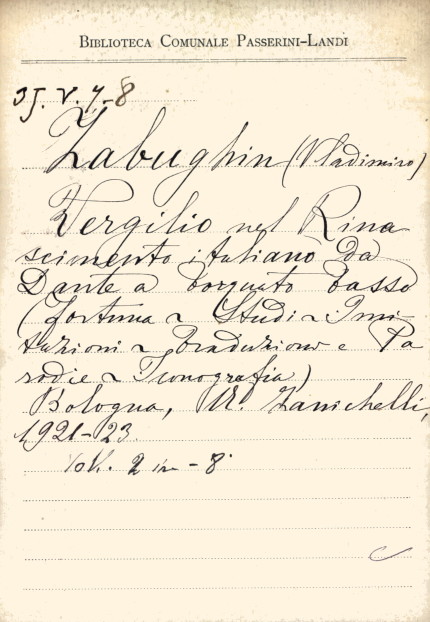 BIBLIOTECA COMUNALE PASSERINI-LANDI
3J. V. 7-8
Zabughin (Vladimiro)
Vergilio nel Rina
scimento italiano da
Dante a Torquato Tasso
(Fortuna ~ Studi ~ Imi-
tazioni ~ Traduzioni e Pa
rodie ~ Iconografia)
Bologna, N. Zanichelli,
1921-23.
Vol. 2 in - 8°